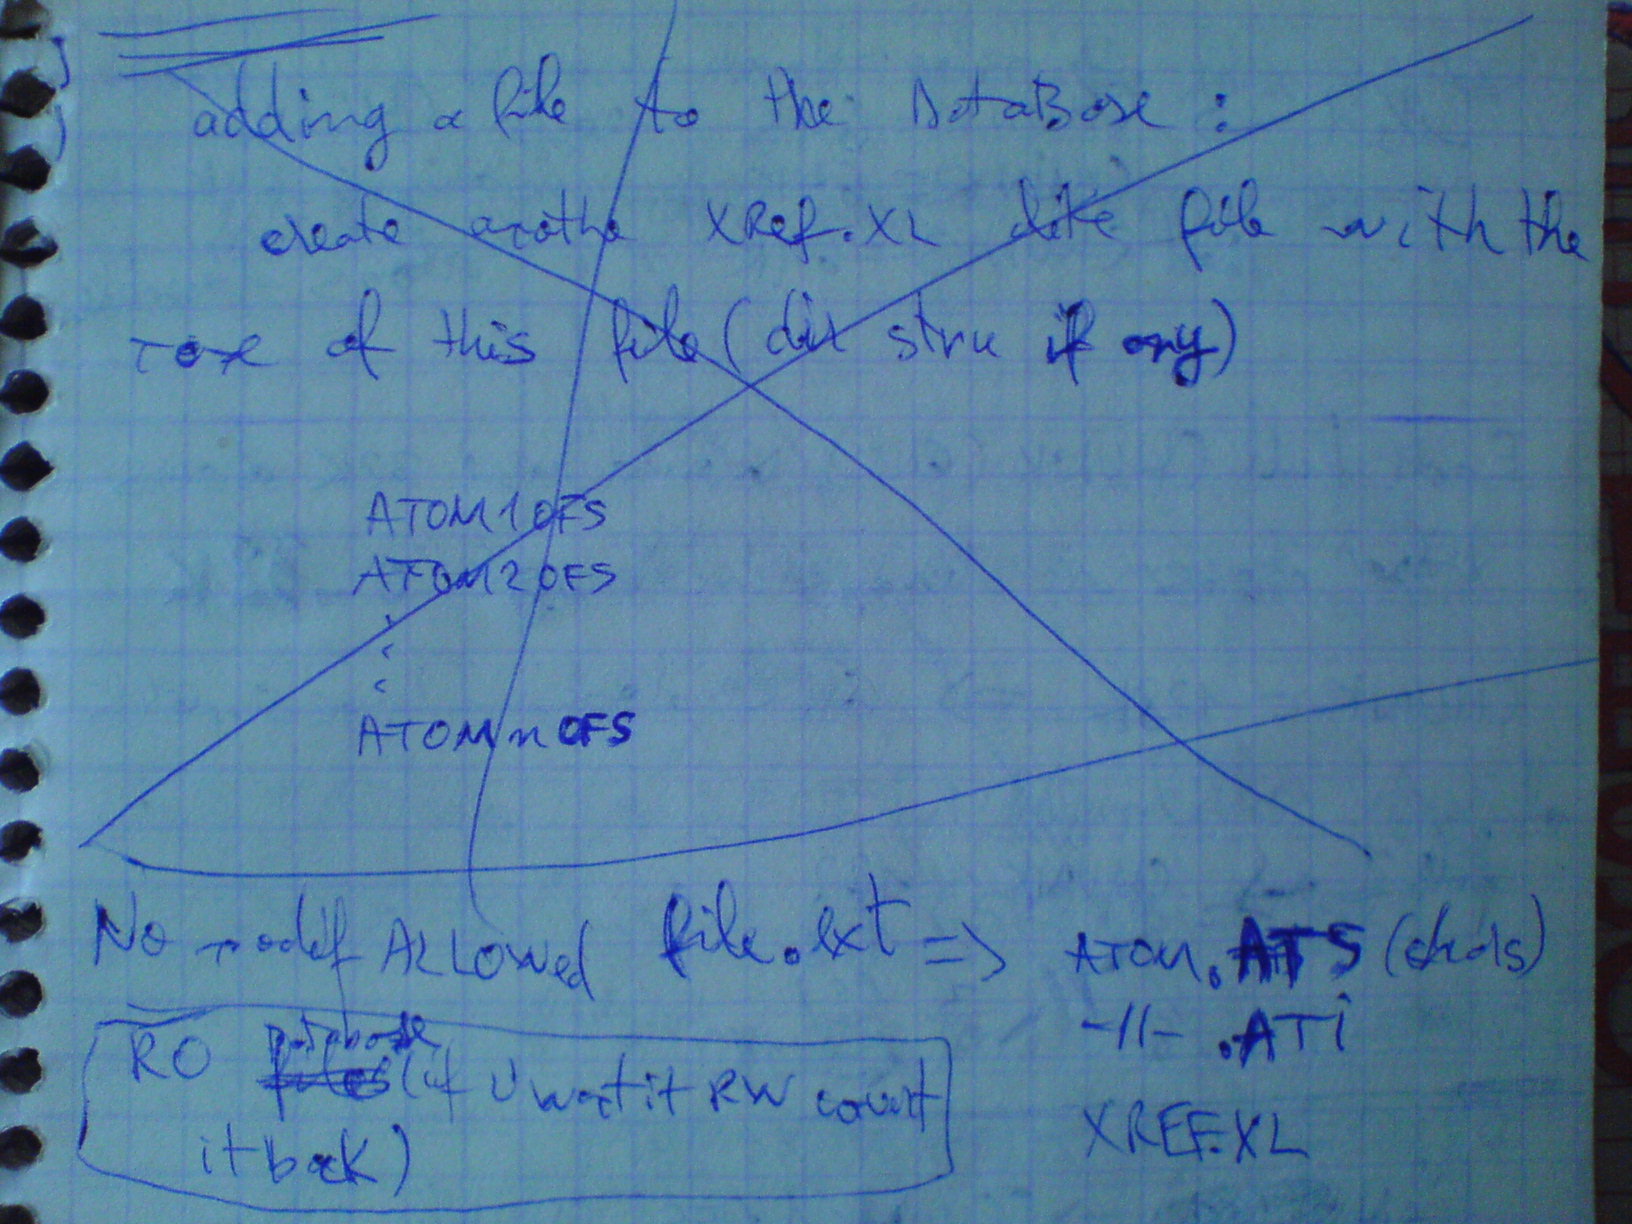 adding a file to the DataBase :
create anothe XRef.XL like file with the
name of this file (dir stru if any)
ATOM1 OFS
ATOM2 OFS
ATOM n OFS
No modif ALLOWED file.ext => ATOM.ATS (
-//- .ATi
RO database (if U want it RW
XREF.XL
it back)